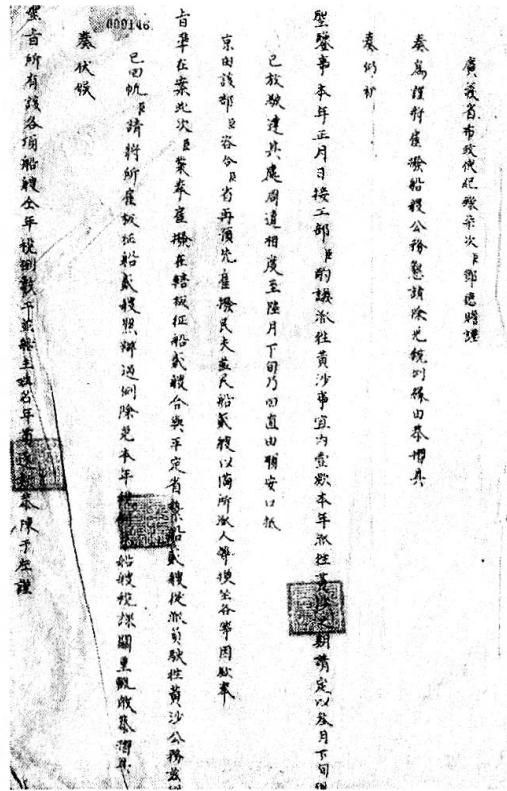 000146
廣義省布政使紀錄柒次臣鄧德贍謹
奏為謹將雇撥船艘公務懇請除免稅例緣由恭摺具
奏仰祈
聖鑒事本年正月日接工部臣酌議派往黃沙事宜內壹款本年派往黃沙之期請定以叁月下旬
已放敬達其處周遭相度至陸月下旬乃回直由順安口抵
京由該部臣咨合臣省再預先雇撥民夫並民船貳艘以備所派人弁摸坐各等因欽奉
旨準在案此次臣業奉雇撥在轄板征船貳艘合與平定省藝船貳艘從派員駛往黃沙公務茲
已回帆臣請將所雇板征船貳艘照辦過例除免本年船艘稅課關重輒敢恭摺具
奏伏候
聖旨所有該各項船艘全年稅例數干並與主姓名年著逐 恭陳于左謹